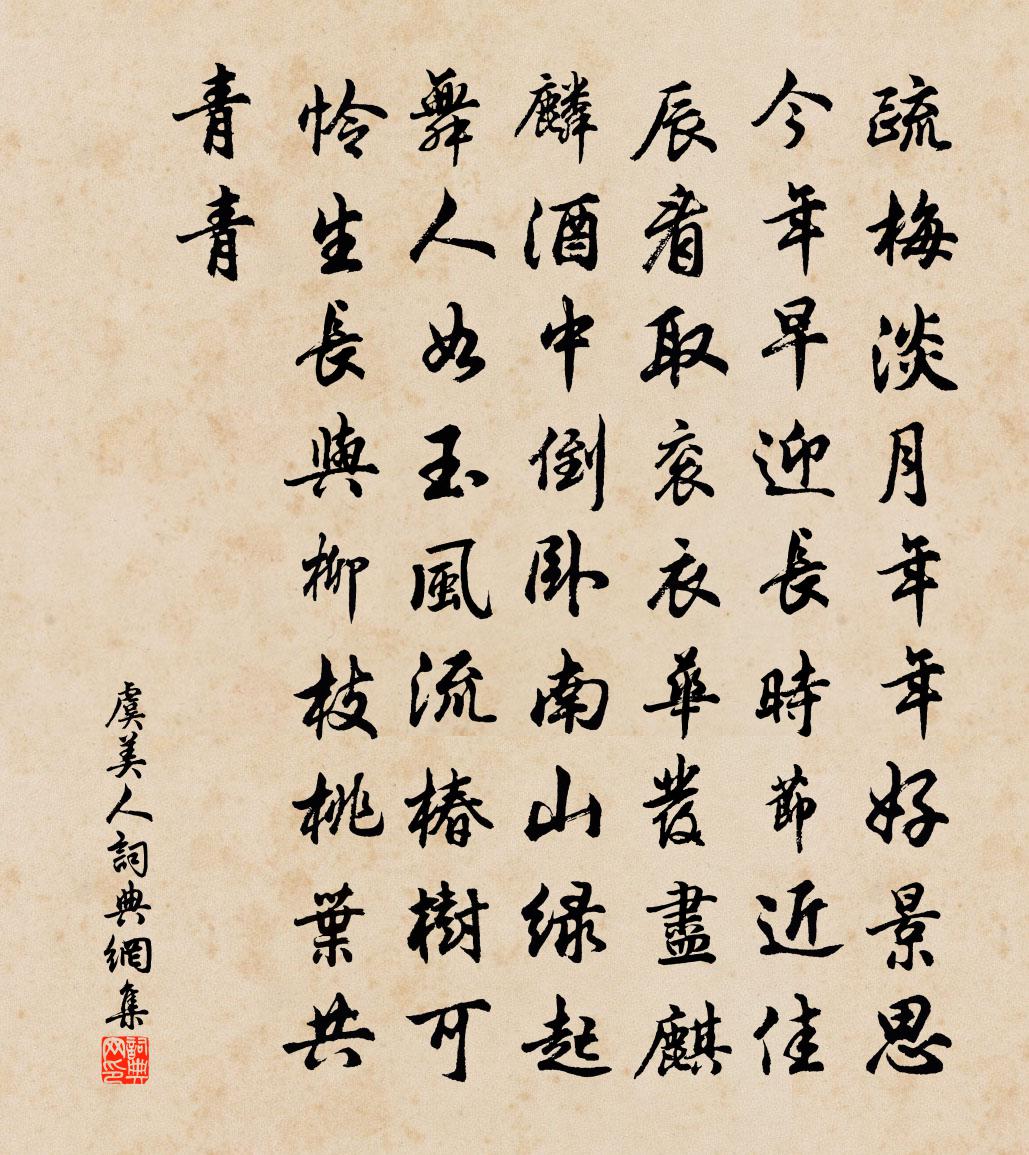 疏梅淡月年年好景思
今年早迎長時節近佳
辰看取衮衣華發盡麒
麟酒中倒卧南山緑起
舞人如玉風流椿樹可
怜生長與柳枝桃葉共
青青
虞美人詞典網集
詞典网印